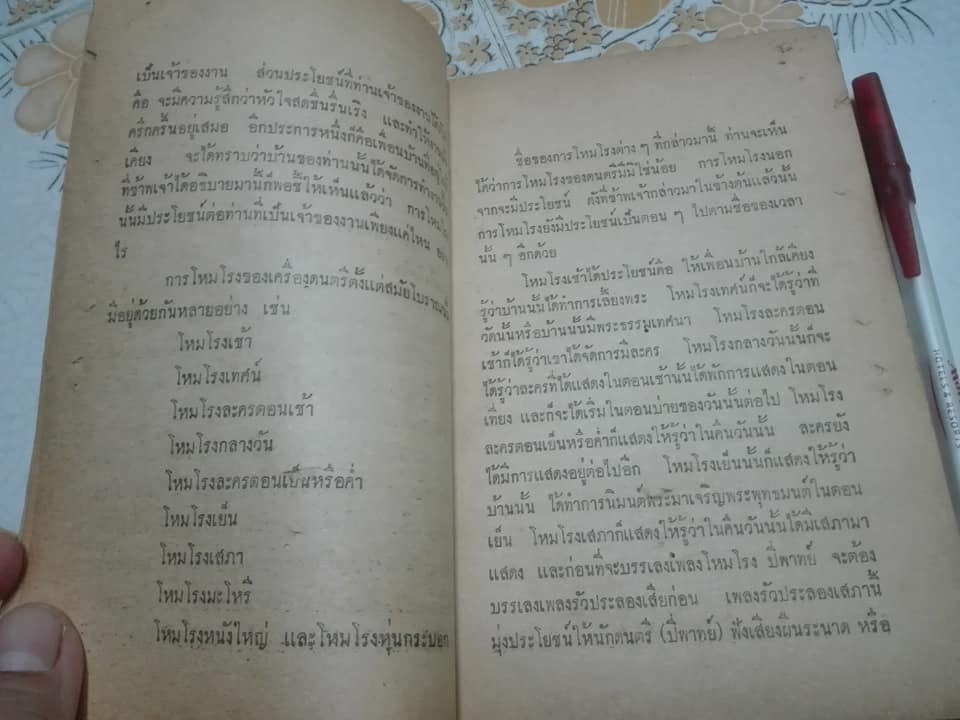 เป็นเจ้าของงาน ส่วนประโยชน์ที่ท่านเจ้าของงานได้รับ
คือ จะมีความรู้สึกว่าหัวใจสดชื่นรื่นเริง และทำให้งาน
ครึกครื้นอยู่เสมอ อีกประการหนึ่งก็คือเพื่อนบ้านที่อยู่
เคียง จะได้ทราบว่าบ้านของท่านนั้นได้จัดการทำงาน
ที่ข้าพเจ้าได้อธิบายมานี้ก็พอชี้ให้เห็นแล้วว่า การโหมโรง
นั้นมีประโยชน์ต่อท่านที่เป็นเจ้าของงานเพียงแค่ไหน
ไร
การโหมโรงของเครื่องดนตรีตั้งแต่สมัยโบราณ
มีอยู่ด้วยกันหลายอย่าง เช่น
โหมโรงเช้า
โหมโรงเทศน์
โหมโรงละครตอนเช้า
โหมโรงกลางวัน
โหมโรงละครตอนเย็นหรือค่ำ
โหมโรงเย็น
โหมโรงเสภา
โหมโรงมะโหรี
โหมโรงหนังใหญ่ และโหมโรงหุ่นกระบอก
ชื่อของการโหมโรงต่าง ๆ ที่กล่าวมานี้ ท่านจะเห็น
ได้ว่าการโหมโรงของดนตรีมีมิใช่น้อย การโหมโรงนอก
จากจะมีประโยชน์ ดังที่ข้าพเจ้ากล่าวมาในข้างต้นแล้วนั้น
การโหมโรงยังมีประโยชน์เป็นตอน ๆ ไปตามชื่อของเวลา
นั้น ๆ อีกด้วย
โหมโรงเช้าได้ประโยชน์คือ ให้เพื่อนบ้านใกล้เคียง
รู้ว่าบ้านนั้นได้ทำการเลี้ยงพระ โหมโรงเทศน์ก็จะได้รู้ว่าที่
วัดนั้นหรือบ้านนั้นมีพระธรรมเทศนา โหมโรงละครตอน
เช้าก็ได้รู้ว่าเขาได้จัดการมีละคร โหมโรงกลางวันนั้นก็จะ
ได้รู้ว่าละครที่ได้แสดงในตอนเช้านั้นได้พักการแสดงในตอน
เที่ยง และก็จะได้เริ่มในตอนบ่ายของวันนั้นต่อไป โหมโรง
ละครตอนเย็นหรือค่ำก็แสดงให้รู้ว่าในคืนวันนั้น ละครยัง
ได้มีการแสดงอยู่ต่อไปอีก โหมโรงเย็นนั้นก็แสดงให้รู้ว่า
บ้านนั้น ได้ทำการนิมนต์พระมาเจริญพระพุทธมนต์ในตอน
เย็น โหมโรงเสภาก็แสดงให้รู้ว่าในคืนวันนั้นได้มีเสภามา
แสดง และก่อนที่จะบรรเลงเพลงโหมโรง ปี่พาทย์ จะต้อง
บรรเลงเพลงรัวประลองเสียก่อน เพลงรัวประลองเสภานี้
มุ่งประโยชน์ให้นักดนตรี (ปี่พาทย์) ฟังเสียงผืนระนาด หรือ
HOTELS & RESORTS